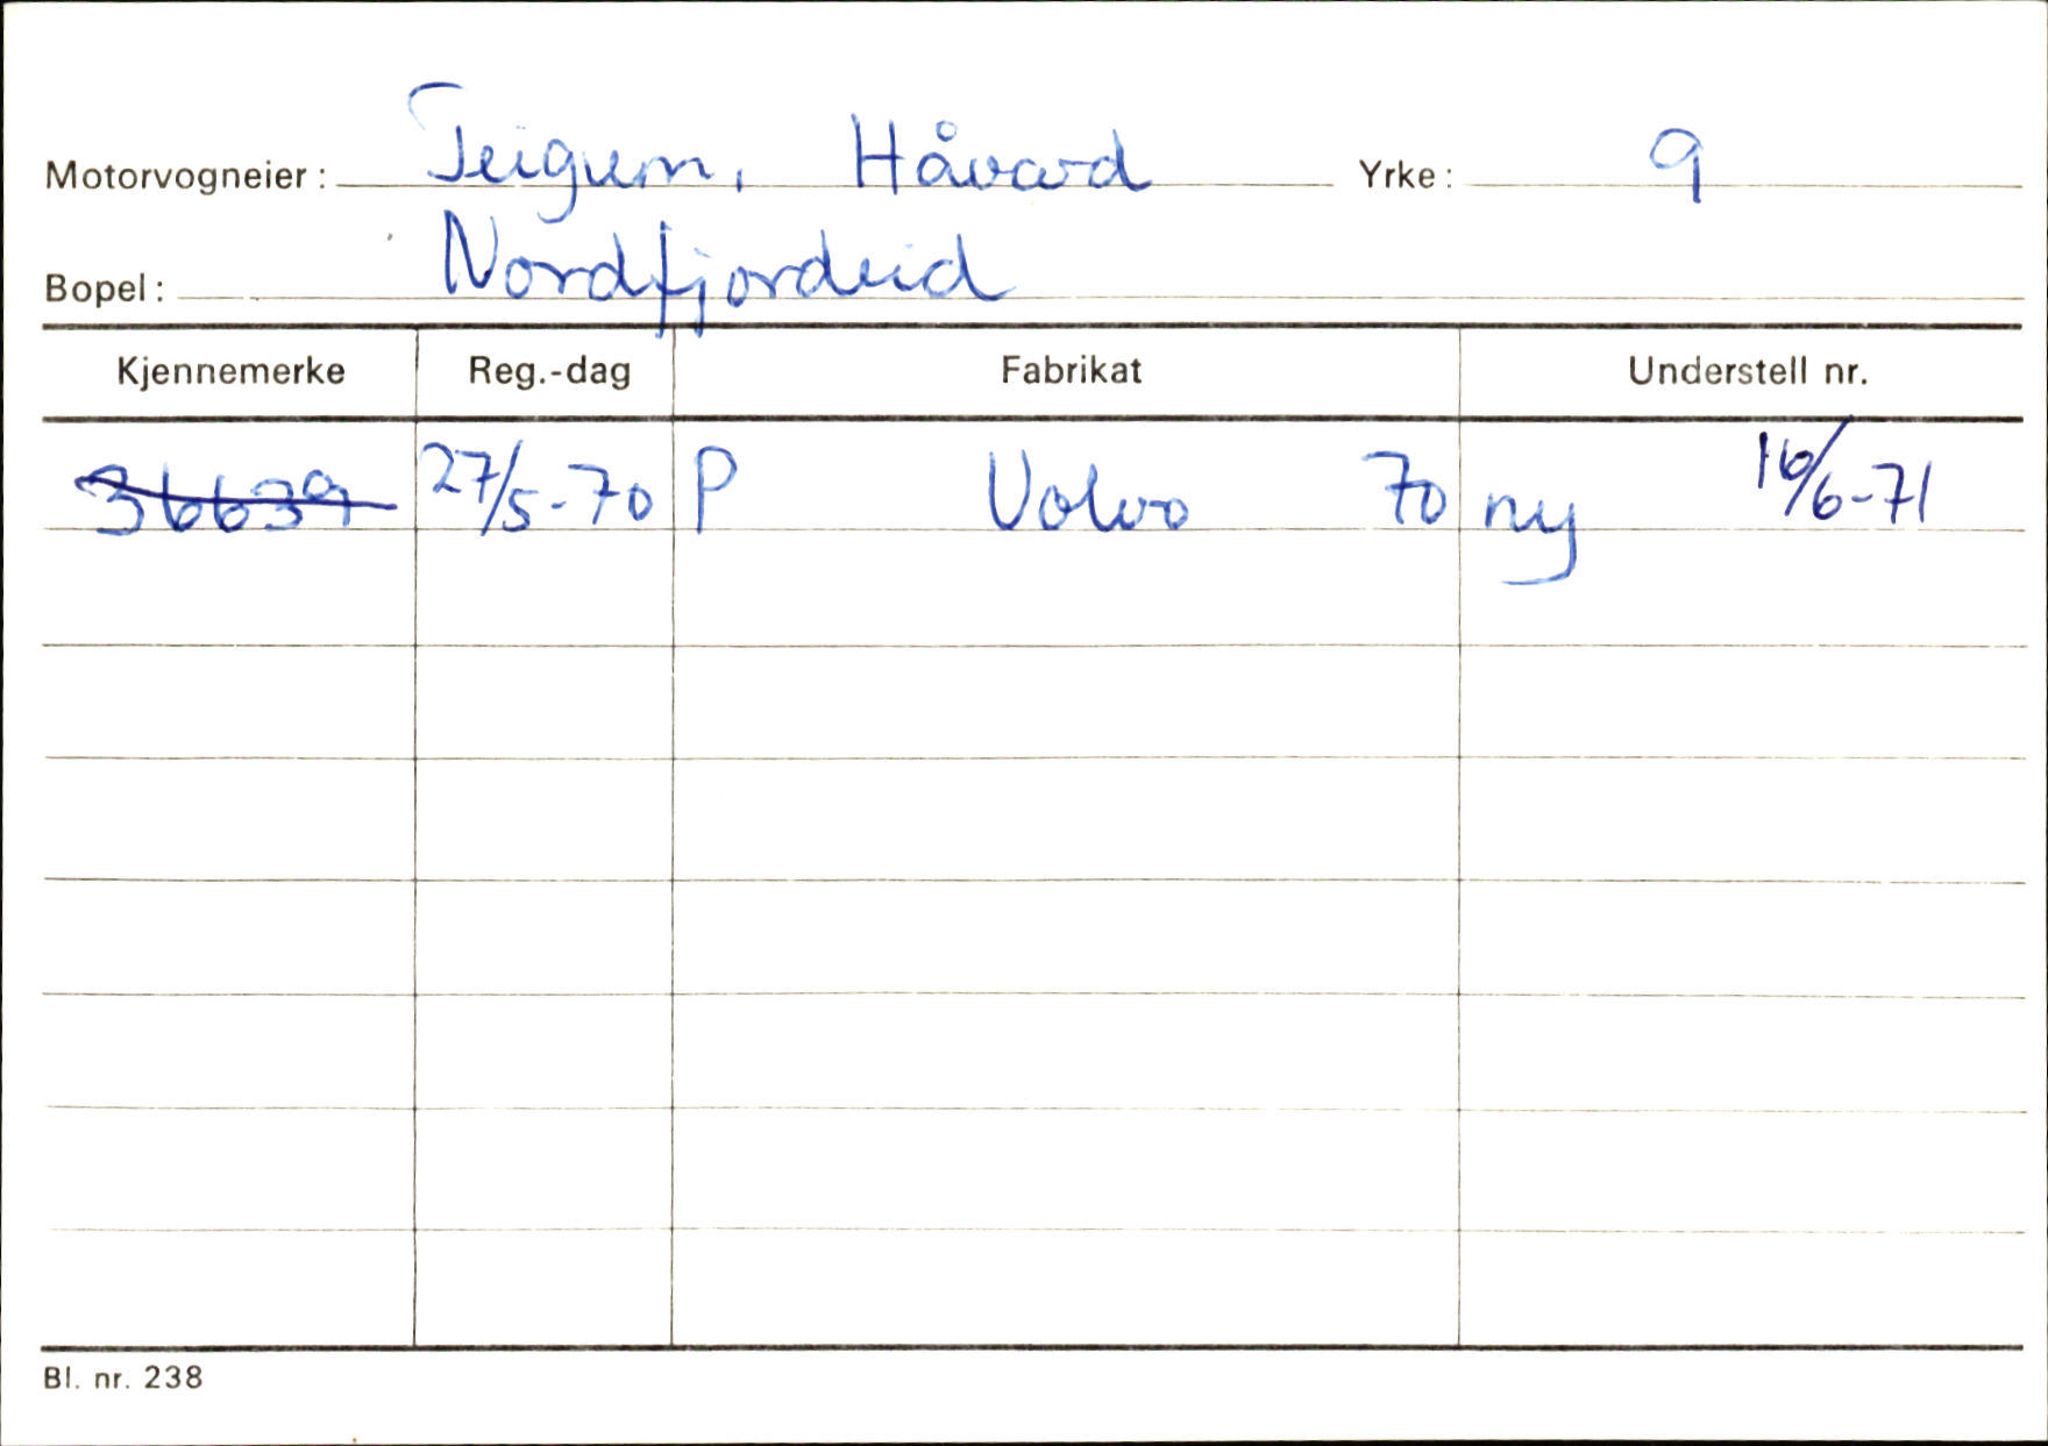 Motorvogneier: Teigum, Håvard Yrke: 9
Bopel: Nordfjordeid
Kjennemerke Reg.-dag Fabrikat Understell nr.
36639 27/5-70 P Volvo 70 ny 16/6-71
Bl. nr. 238